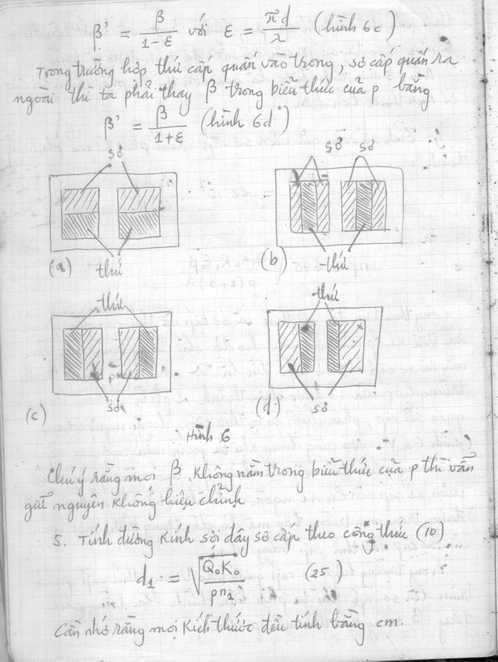 β' = β/(1-ε) với ε = πd/λ (hình 6c)
Trong trường hợp thứ cấp quấn vào trong, sơ cấp quấn ra
ngoài thì ta phải thay β trong biểu thức của p bằng
β' = β/(1+ε) (hình 6d)
sơ
sơ sơ
(a) thứ
(b) thứ
thứ
thứ
(c) sơ
(d) sơ
Hình 6
Chú ý rằng mọi β không nằm trong biểu thức của p thì vẫn
giữ nguyên không hiệu chỉnh
5. Tính đường kính sợi dây sơ cấp theo công thức (10)
d₁ = √(Q₀K₀/pn₁) (25)
Cần nhớ rằng mọi kích thước đều tính bằng cm.